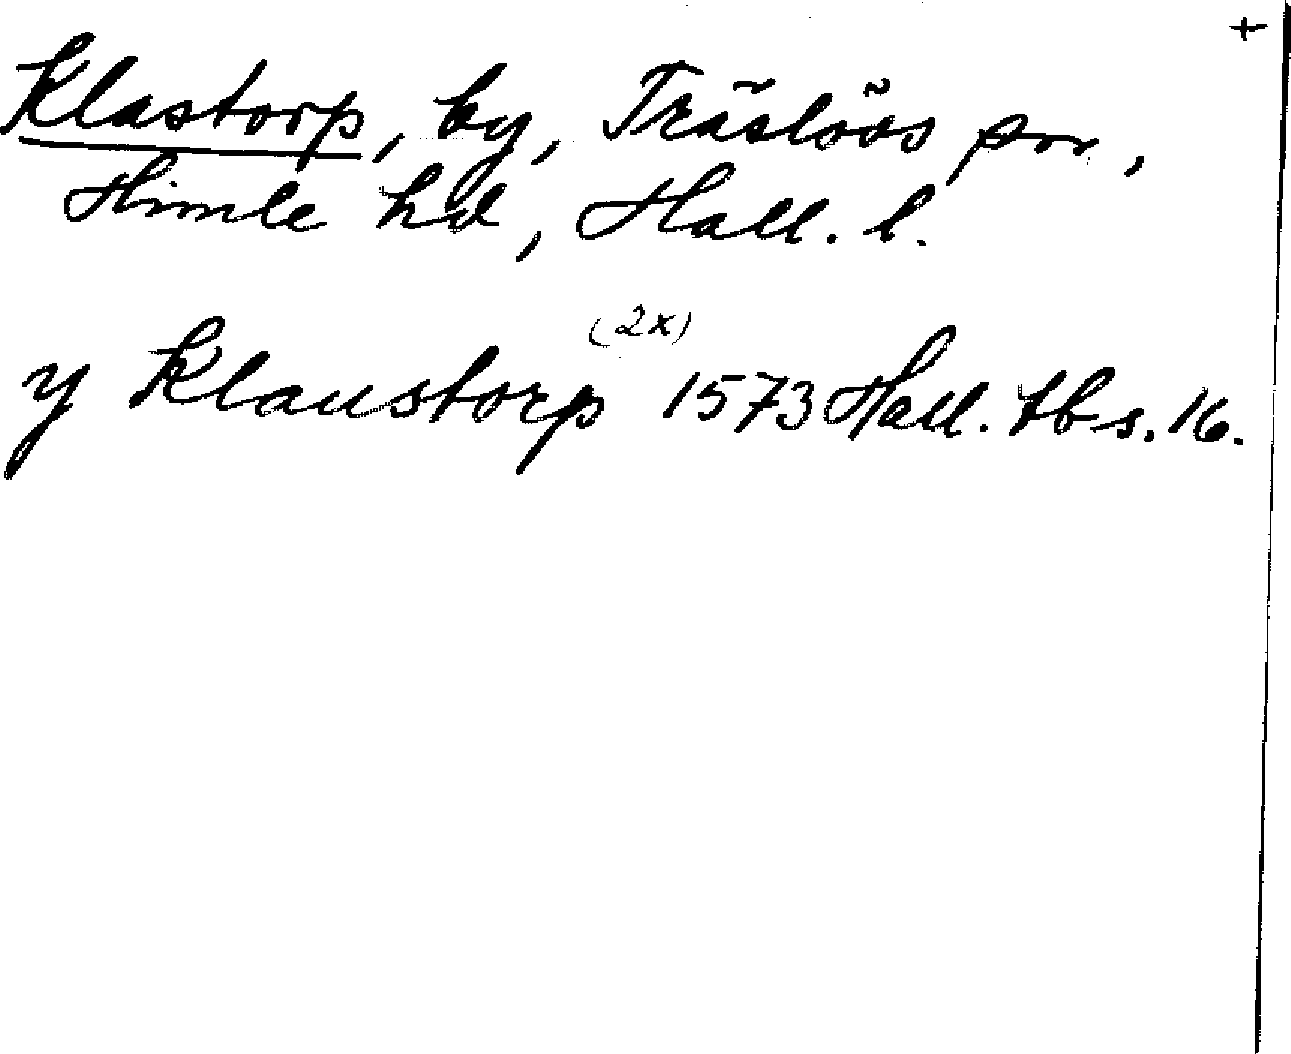 +
Klastorp, by, Träslövs sn,
Himle hd, Hall. l.
(2x)
y Klaustorp 1573 Hall. tb s. 16.